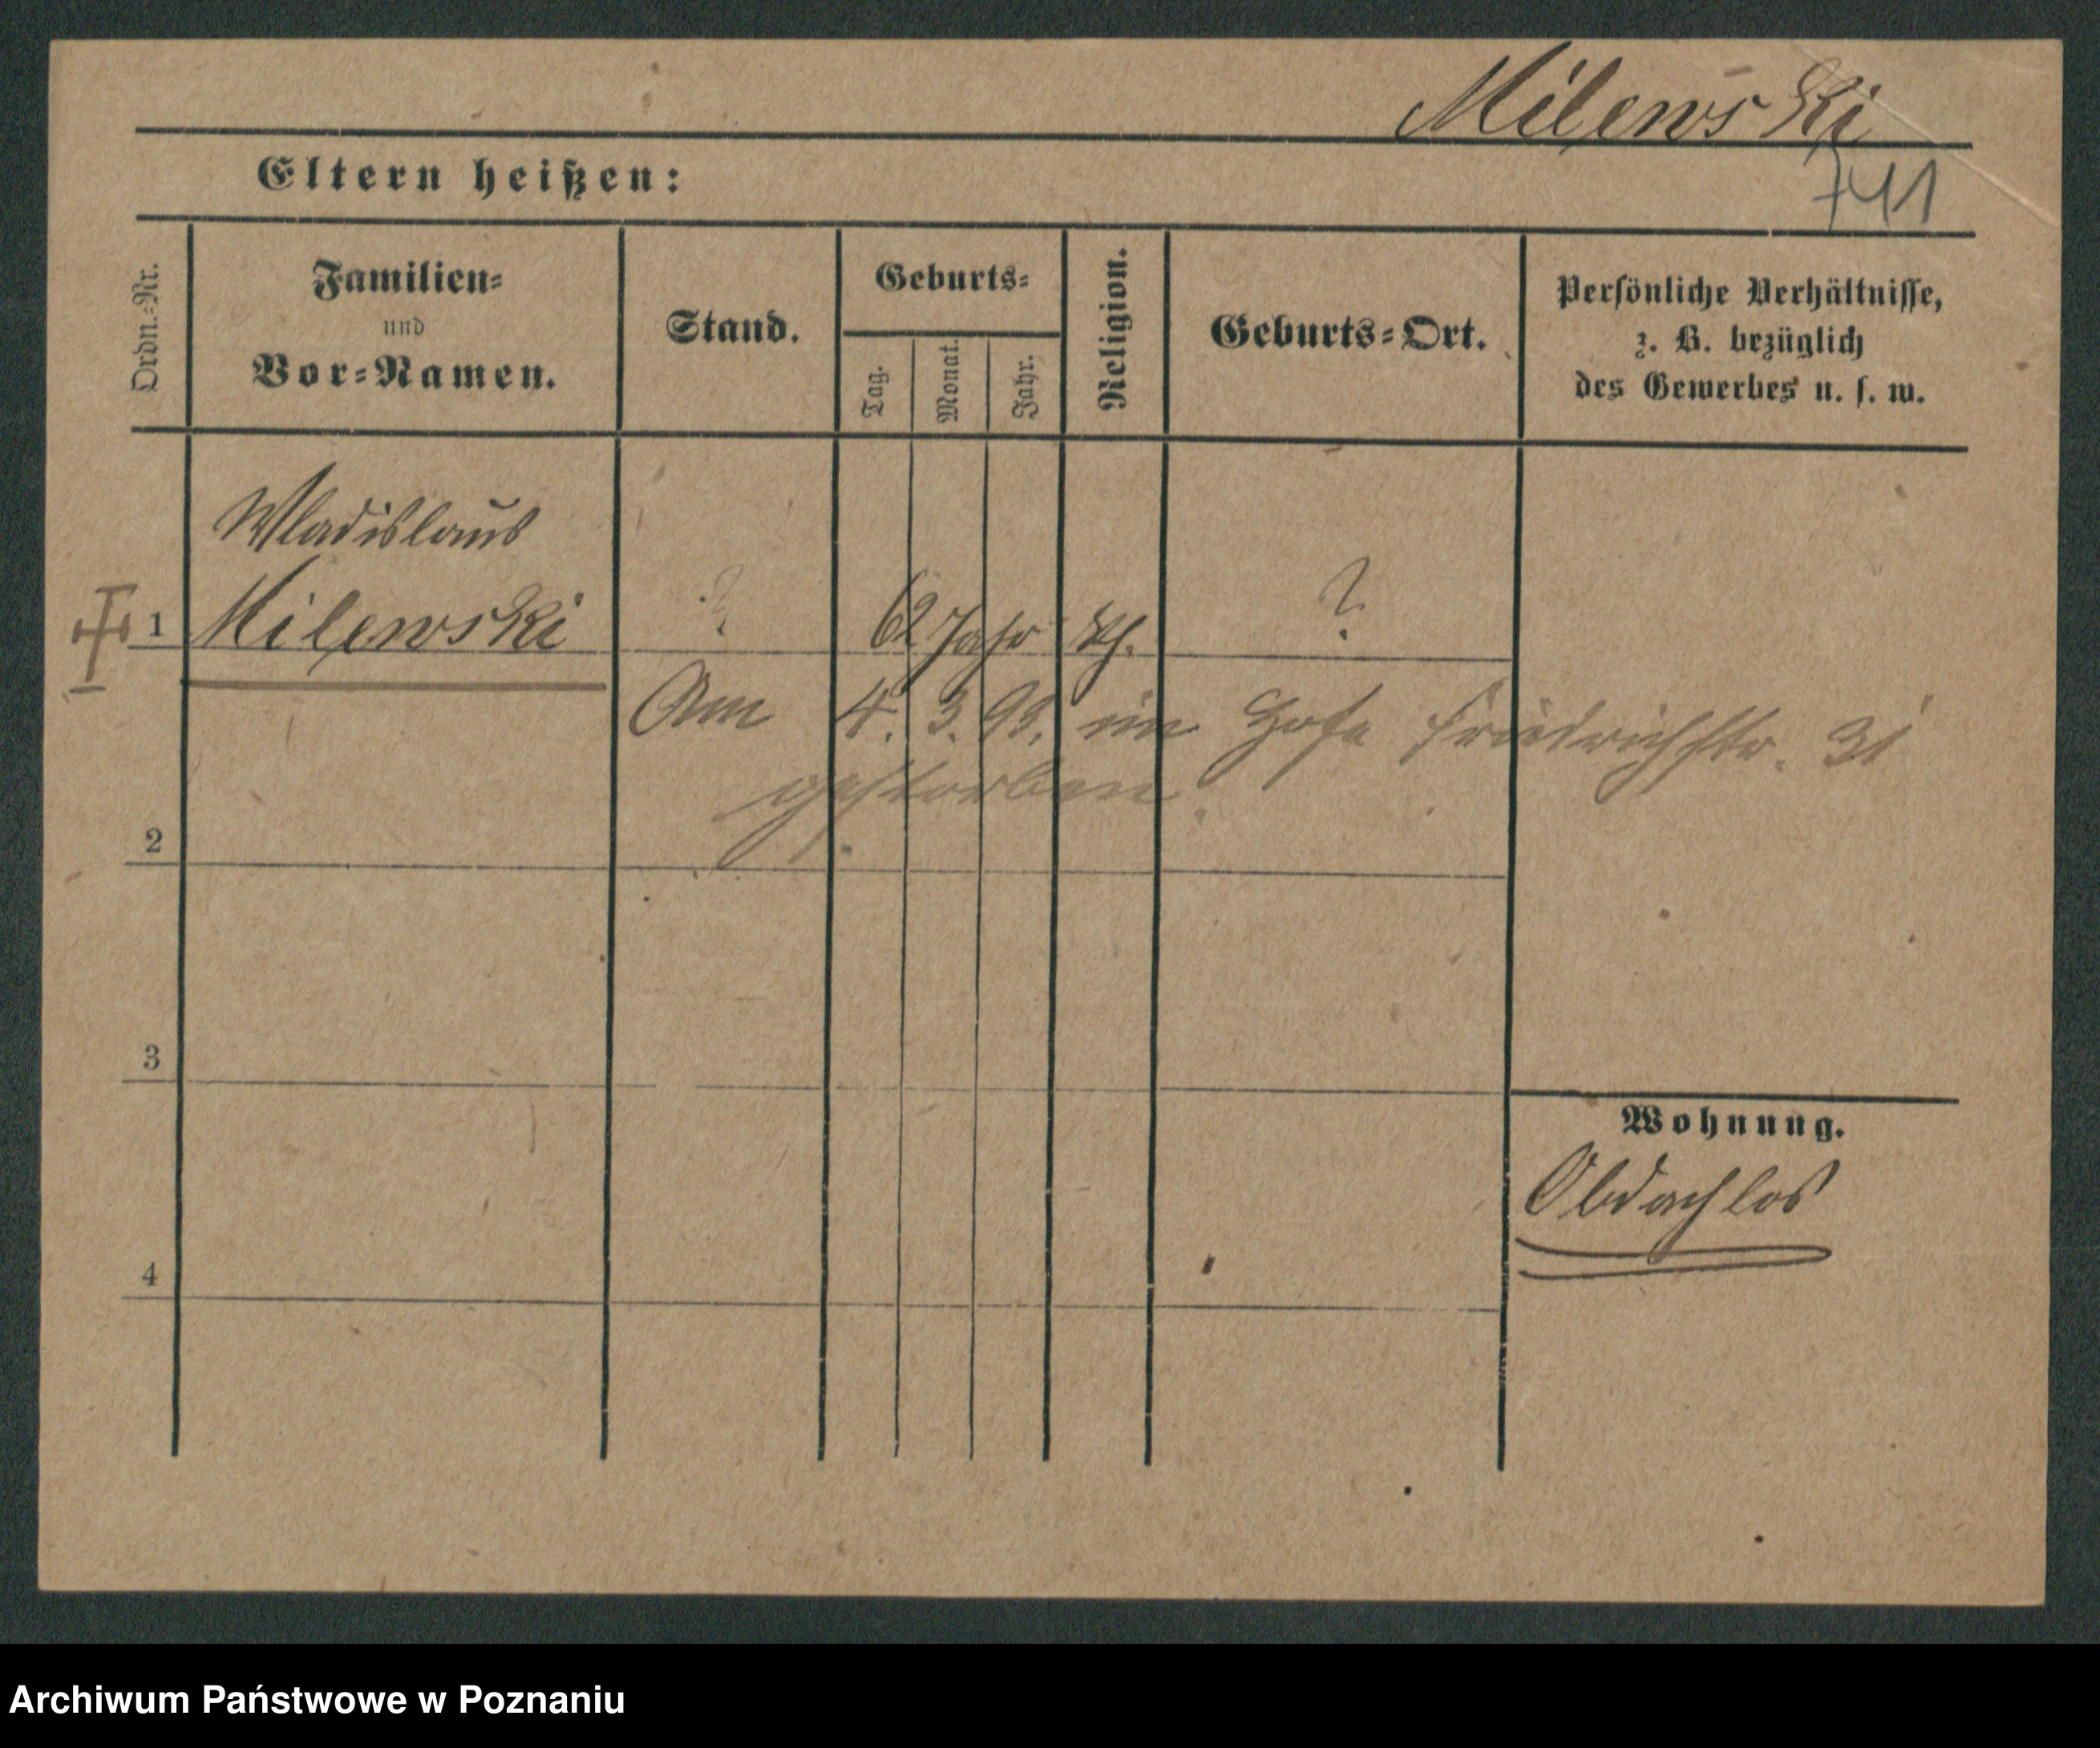 Milewski
Eltern heißen:
741
Ordn.-Nr.
Familien-
und
Vor-Namen.
Stand.
Geburts-
Tag.
Monat.
Jahr.
Religion.
Geburts-Ort.
Persönliche Verhältnisse,
z. B. bezüglich
des Gewerbes u. s. w.
Wladislaus
1 Milewski ? 62 Jahr kth. ?
Am 4. 3. 98. im Hofe Friedrichstr. 31
gestorben.
2
3
Wohnung.
Obdachlos
4
Archiwum Państwowe w Poznaniu